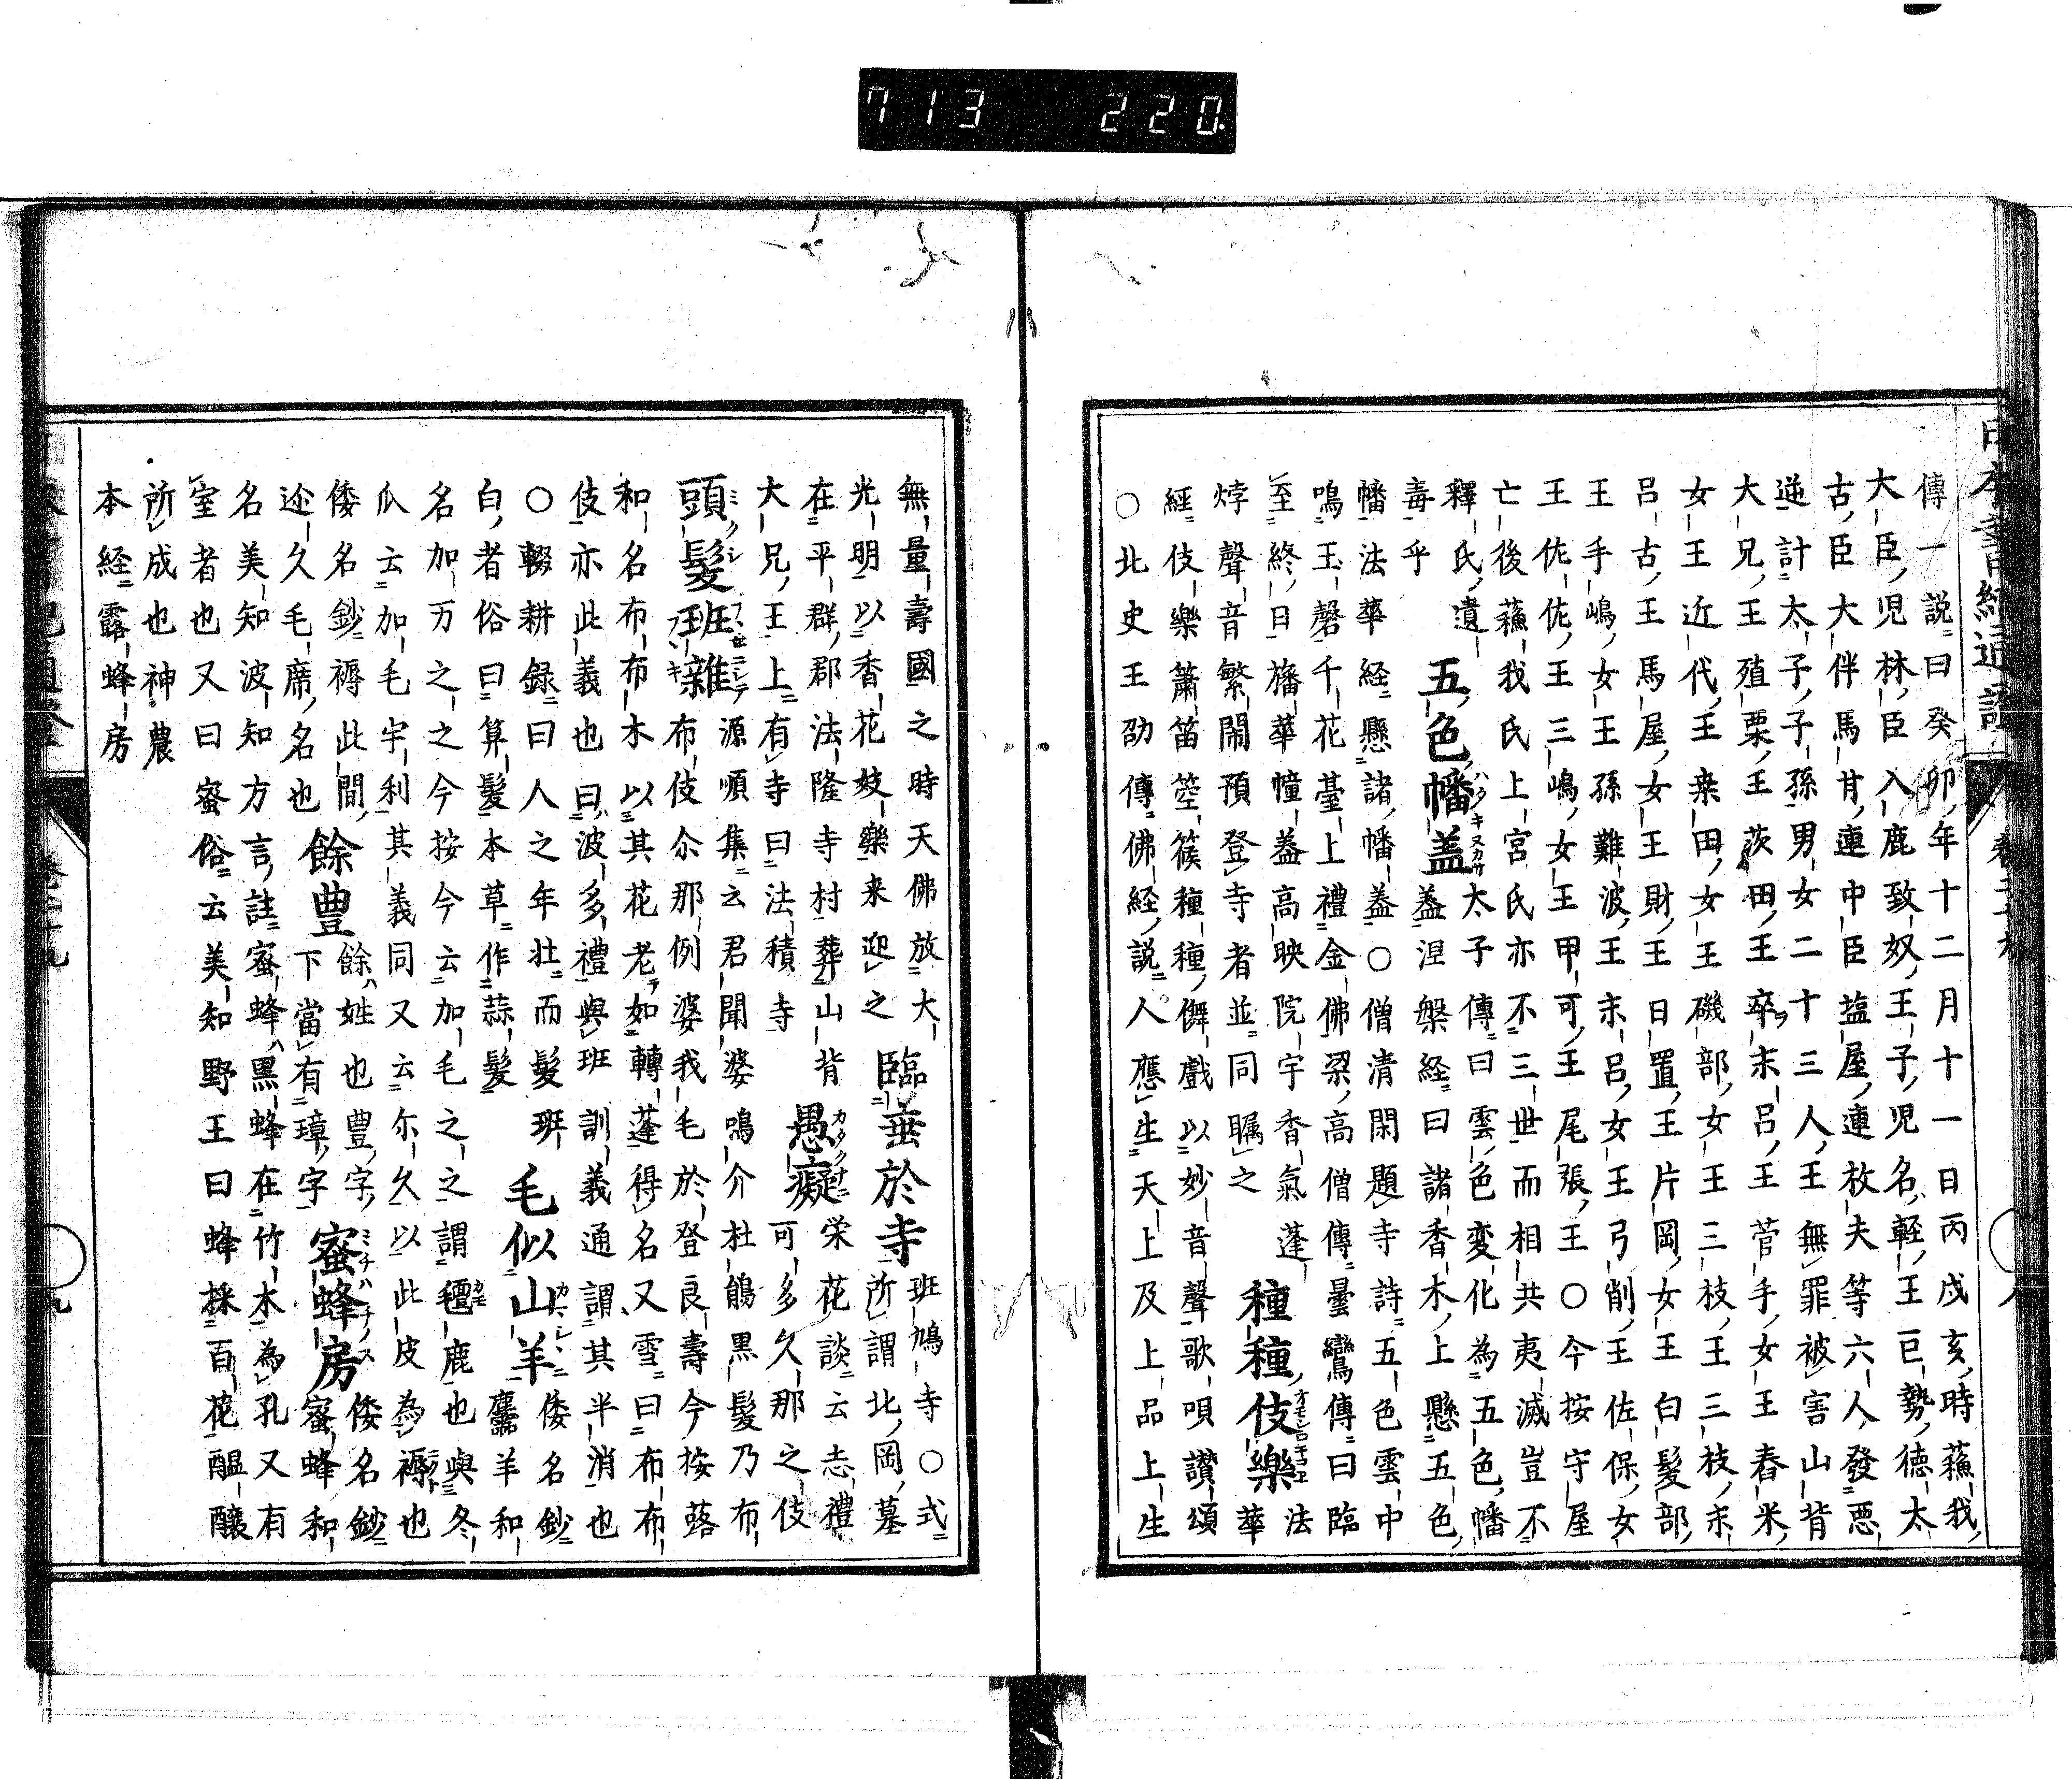 713 220
傳一説曰癸卯年十二月十一日丙戌亥時蘓我
大臣児林臣入鹿致奴王子児名軽王巨勢德太
古臣大臣大伴馬甘連中臣塩屋連枚夫等六人發惡
逆計太子子孫男女二十三人王無罪被害山背
大兄王殖栗王茨田王卒末呂王菅手女王舂米
女王近代王来田女王磯部女王三枝王三枝末
呂古王馬屋女王財王日置王片岡女王白髮部
王手嶋女王孫難波王末呂女王弓削王佐保女
王佐佐王三嶋女王甲可王尾張王〇今按守屋
亡後蘓我氏上宮氏亦不三世而相共夷滅豈不
釋氏遺
毒乎 五色幡盖 太子傳曰雲色變化為五色幡
盖涅槃経曰諸香木上懸五色
幡法華経懸諸幡盖〇僧清閑題寺詩五色雲中
鳴玉磬千花臺上禮金佛梁高僧傳曇鸞傳曰臨
至終日旛華幢盖高映院宇香氣蓬
㶿聲音繁閙預登寺者並同矚之 種種伎樂 法
華
經伎樂簫笛箜篌種種儛戲以妙音聲歌唄讃頌
〇北史王劭傳佛経説人應生天上及上品上生
無量壽國之時天佛放大
光明以香花妓樂来迎之 臨垂於寺 班鳩寺〇式
所謂北岡墓
在平群郡法隆寺村葬山背
大兄王上有寺曰法積寺 愚癡 栄花談云志禮
可多久那之伎
頭髮班雜 源順集云君聞婆鳴介杜鵑黒髮乃布
布伎尒那例婆我毛於登良壽今按蕗
和名布布木以其花老如轉蓬得名又雪曰布布
伎亦此義也曰波多禮與班訓義通謂其半消也
〇輟耕録曰人之年壮而髮班
白者俗曰算髮本草作蒜髮 毛似山羊 倭名鈔
麢羊和
名加万之之今按今云加毛之之謂氊鹿也與冬
瓜云加毛宇利其義同又云尓久以此皮為褥也
倭名鈔褥此間
迩久毛席名也 餘豊 餘姓也豊字
下當有璋字 蜜蜂房 倭名鈔
蜜蜂和
名美知波知方言註蜜蜂黒蜂在竹木為孔又有
室者也又曰蜜俗云美知野王曰蜂採百花醖醸
所成也神農
本経露蜂房